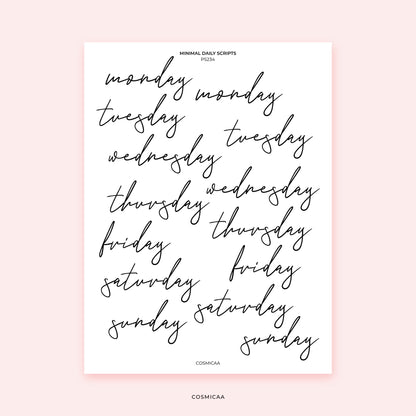 MINIMAL DAILY SCRIPTS
PS234
monday
monday
tuesday
tuesday
wednesday
wednesday
thursday
thursday
friday
friday
saturday
saturday
sunday
sunday
COSMICAA
COSMICAA